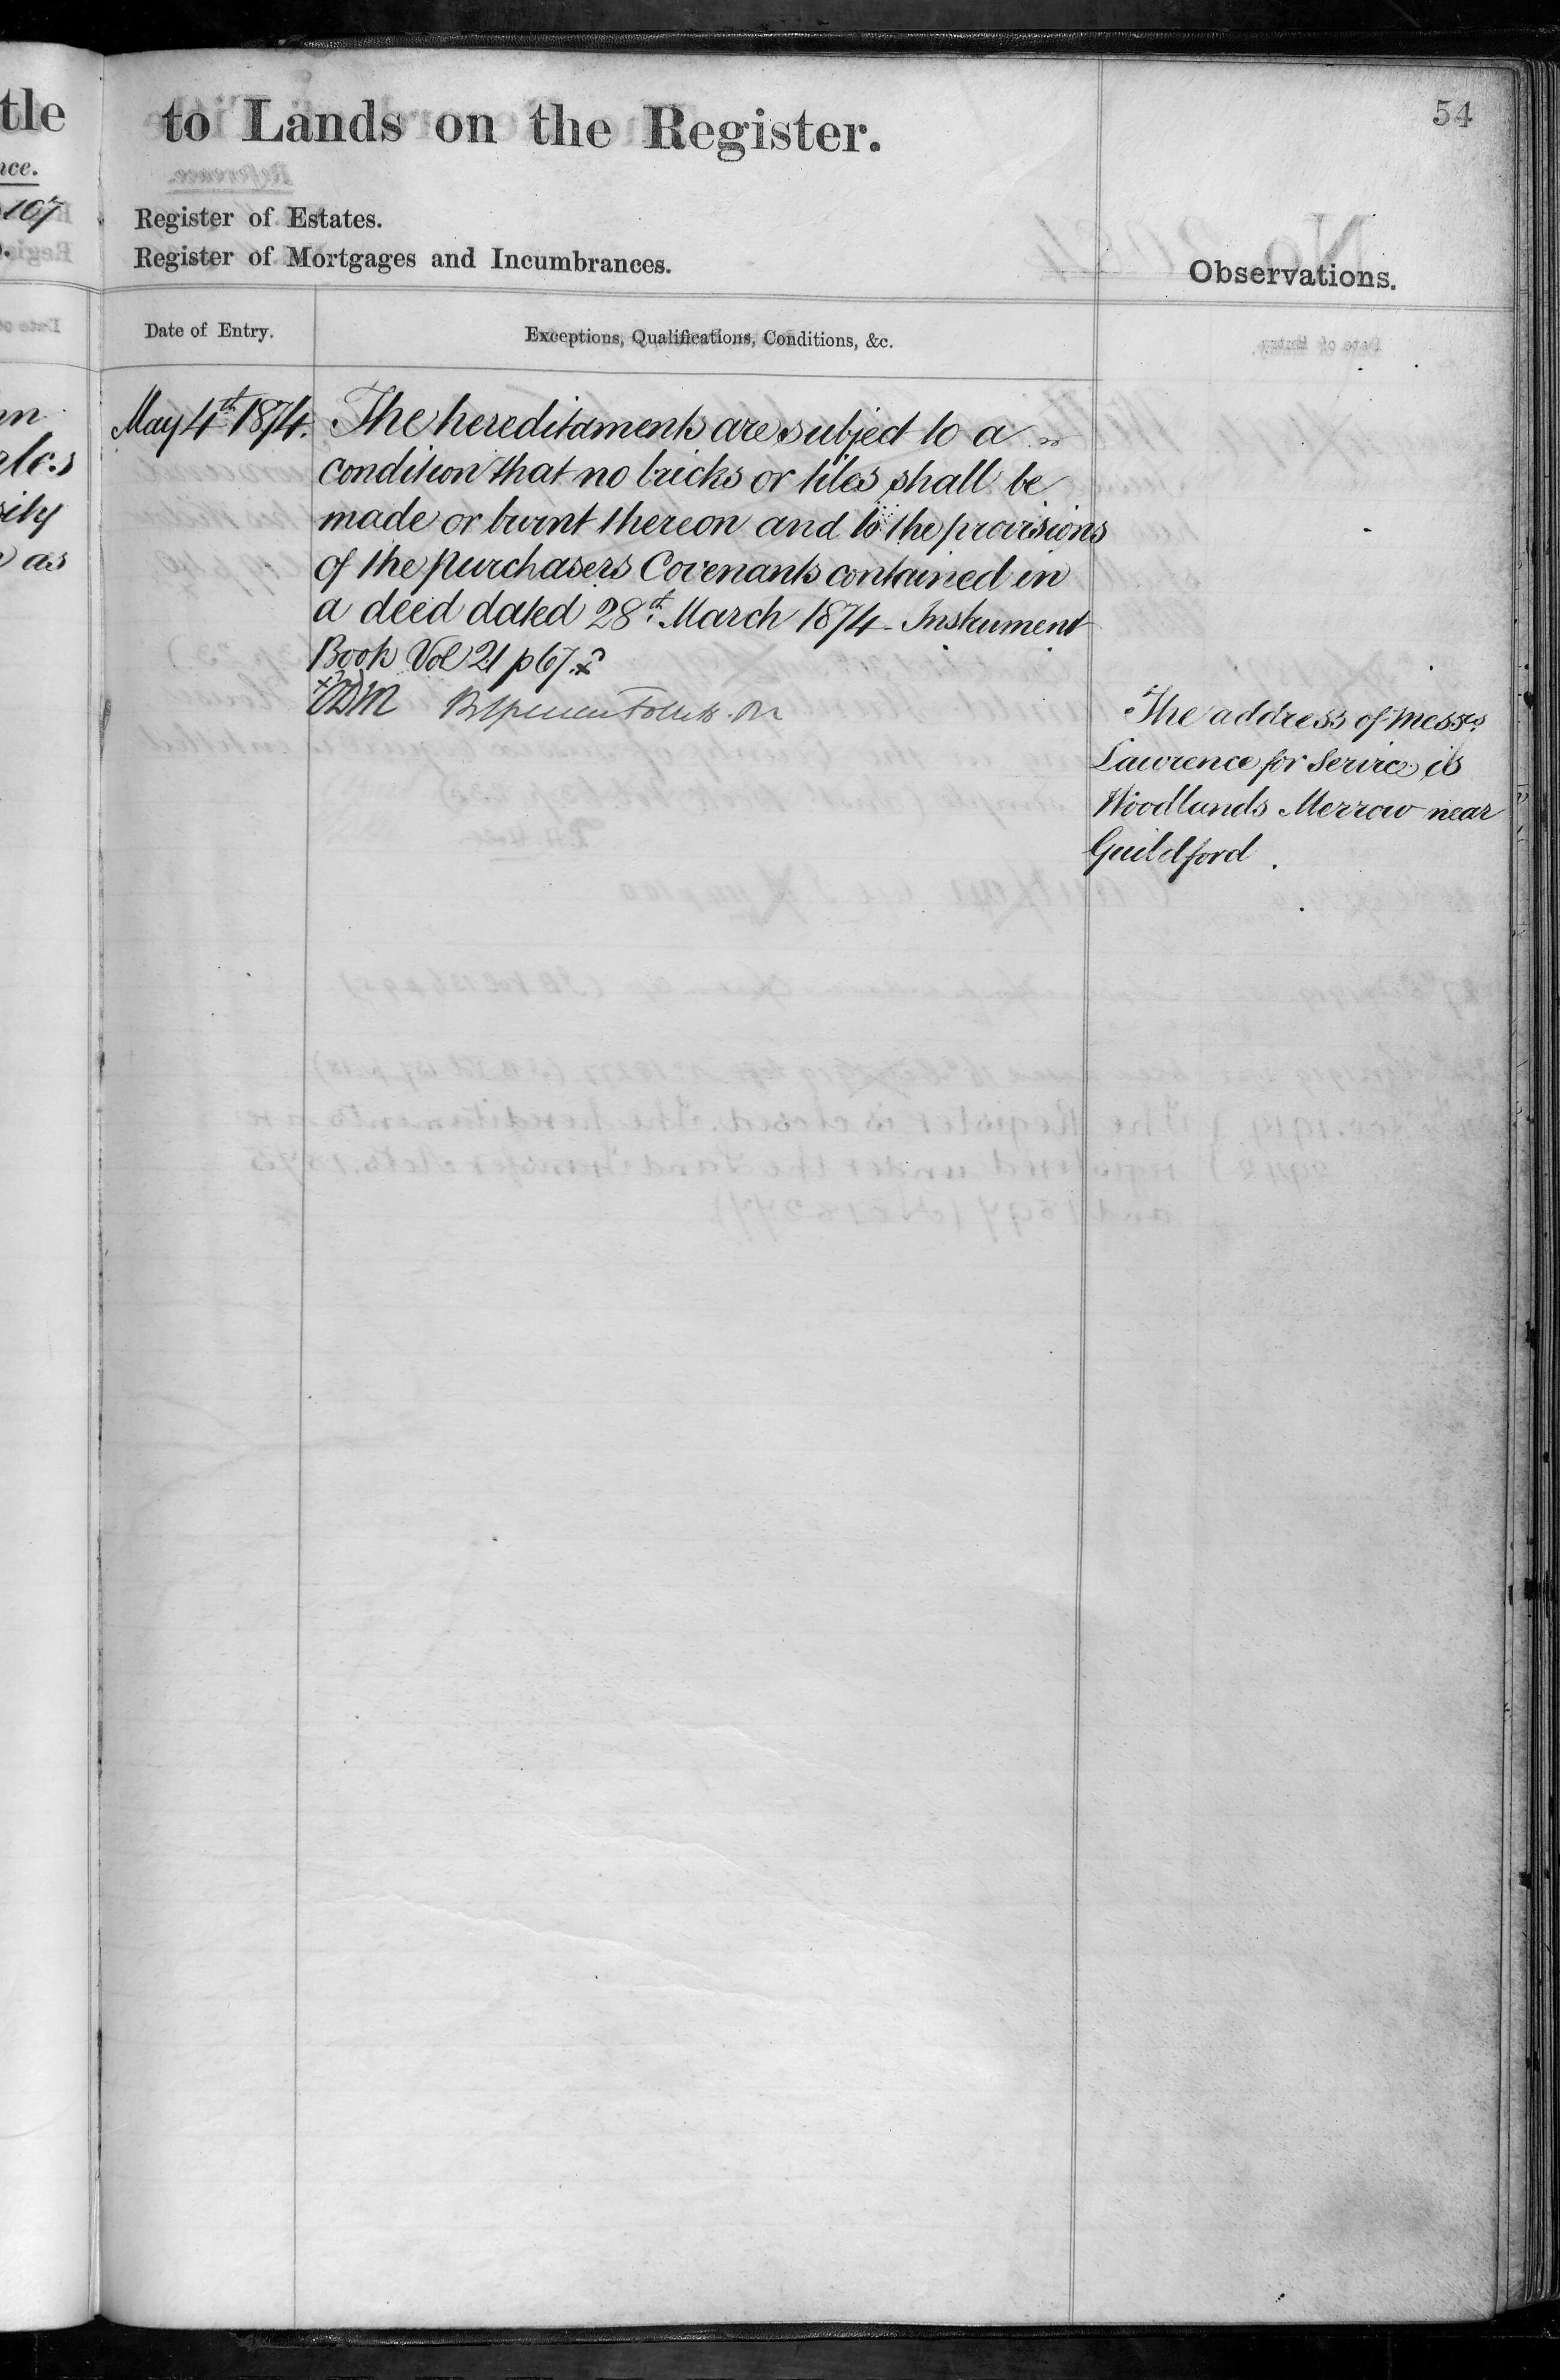 tle
nce.
107
as
54
to Lands on the Register.
Register of Estates.
Register of Mortgages and Incumbrances.
Observations.
Date of Entry.
Exceptions, Qualifications, Conditions, &c.
May 4th 1874. The hereditaments are subject to a
condition that no bricks or tiles shall be
made or burnt thereon and to the provisions
of the purchasers Covenants contained in
a deed dated 28th March 1874 - Instrument
Book Vol 21 p 67.
The address of Messrs
Lawrence for Service is
Woodlands Merrow near
Guildford.